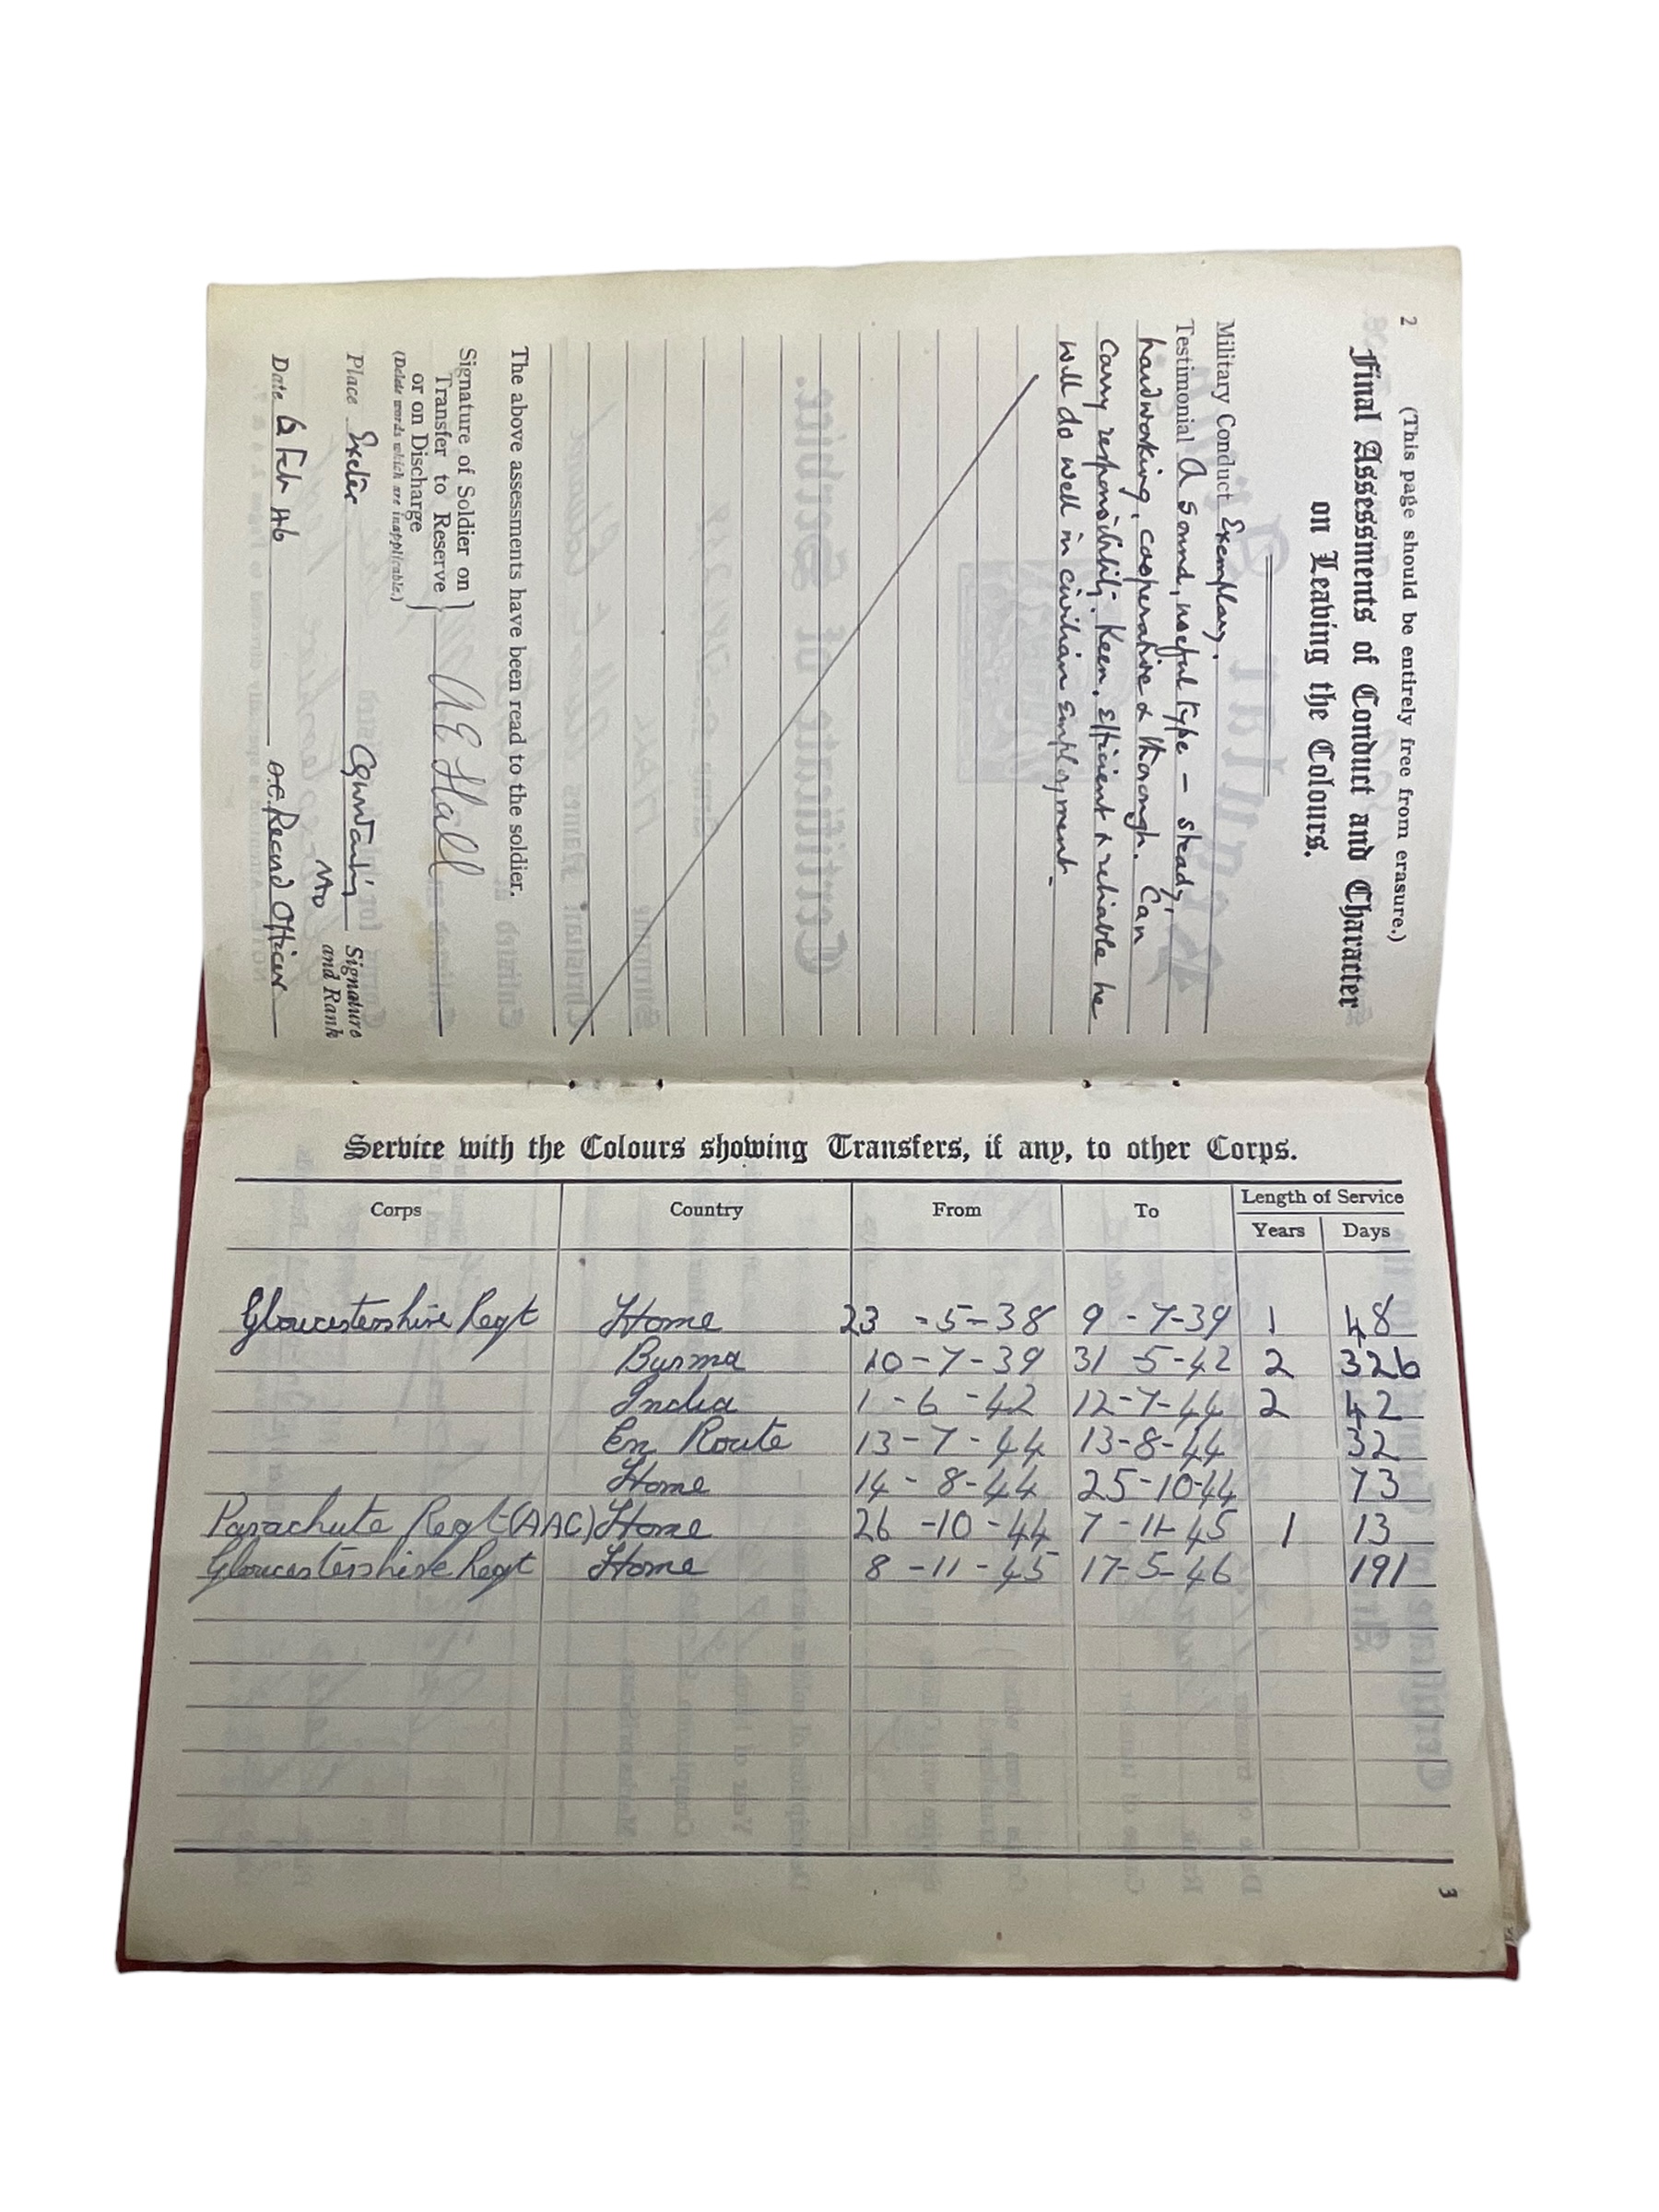 2
(This page should be entirely free from erasure.)
Final Assessments of Conduct and Character
on Leaving the Colours.
Military Conduct Exemplary.
Testimonial A sound, useful type - steady,
hardworking, cooperative & thorough. Can
carry responsibility. Keen, efficient & reliable he
will do well in civilian employment.
The above assessments have been read to the soldier.
Signature of Soldier on
Transfer to Reserve
or on Discharge
(Delete words which are inapplicable.)
A E Hall
Place Exeter
Signature
and Rank
Date 6 Feb 46
O.C. Record Officer
Service with the Colours showing Transfers, if any, to other Corps.
Corps Country From To Length of Service
Years Days
Gloucestershire Regt Home 23 -5-38 9 -7-39 1 48
Burma 10-7-39 31 5-42 2 326
India 1 -6 -42 12-7-44 2 42
En Route 13-7-44 13-8-44 32
Home 14 - 8-44 25-10-44 73
Parachute Regt (AAC) Home 26 -10 -44 7 -11-45 1 13
Gloucestershire Regt Home 8 -11 -45 17-5-46 191
3